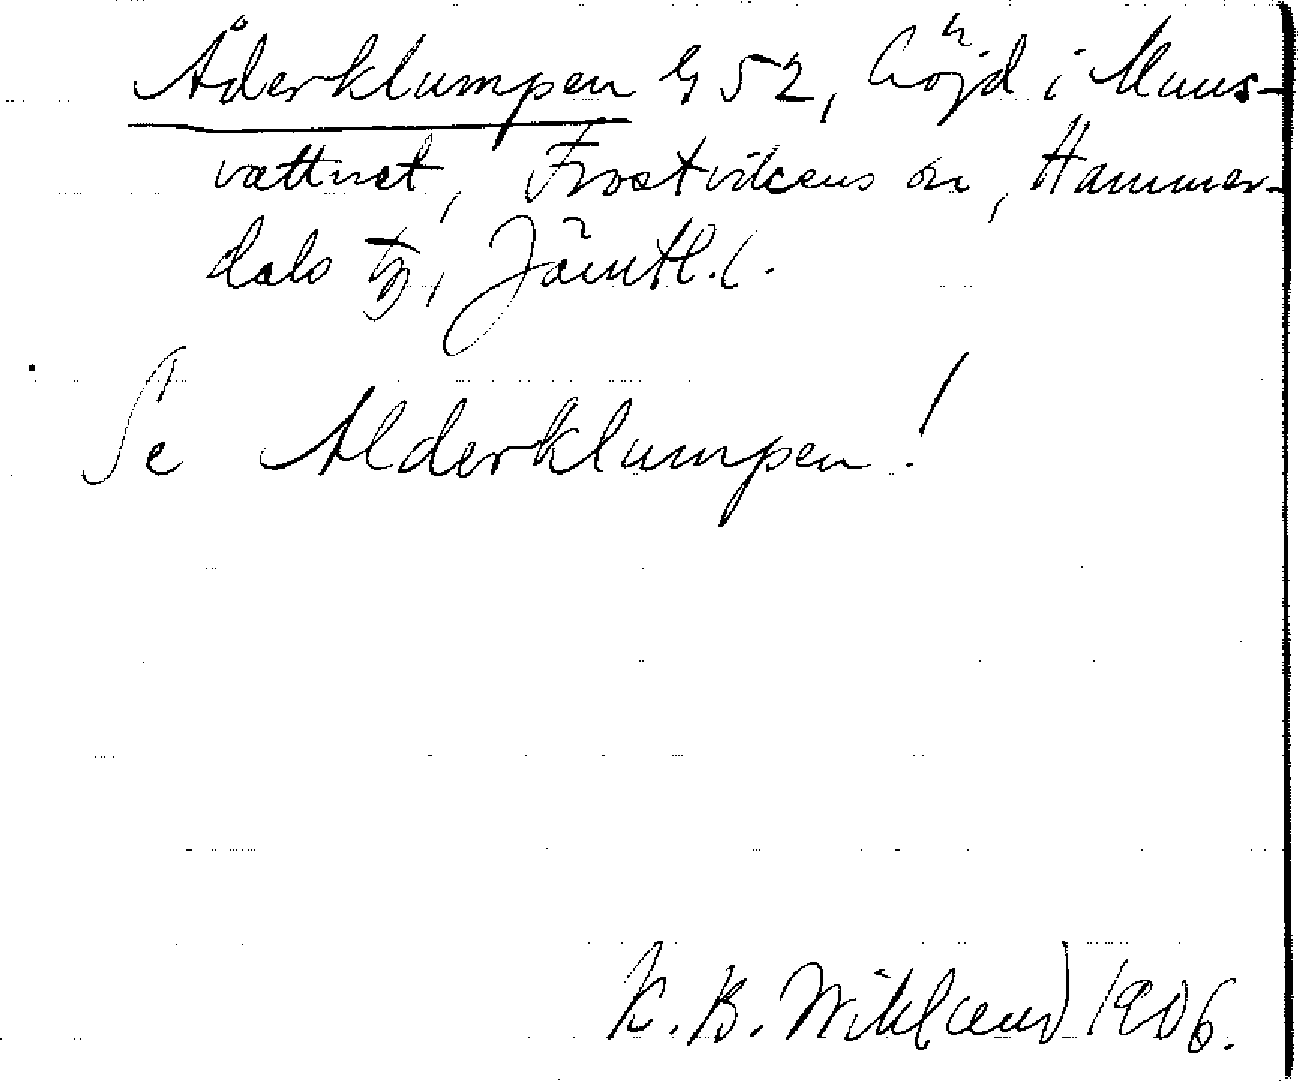 Åderklumpen G 52, höjd i Muus-
vattnet, Frostvikens sn, Hammer-
dals tg, Jämtl. l.
Se Alderklumpen!
K. B. Wiklund 1906.